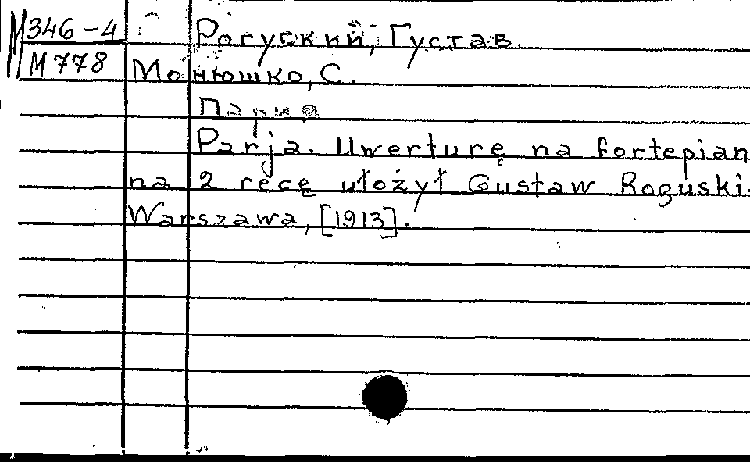 М346-4 Рогуский, Густав
М778 Монюшко, С.
Пария
Parja. Uwerturę na fortepian
na 2 ręce ułożył Gustaw Roguski.
Warszawa, [1913].